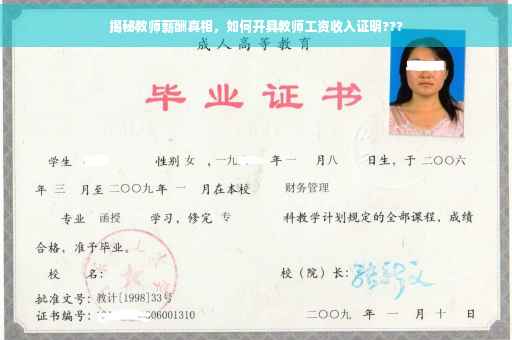 揭秘教师薪酬真相，如何开具教师工资收入证明???
成人高等教育
毕业证书
学生 性别 女 ，一九 年一 月八 日生，于二〇〇六
年 三 月至二〇〇九年 一 月在本校 财务管理
专业 函授 学习，修完 专 科教学计划规定的全部课程，成绩
合格，准予毕业。
校 名： 校（院）长：
批准文号：教计[1998]33号
证书编号： 06001310 二〇〇九 年 一 月 十 日